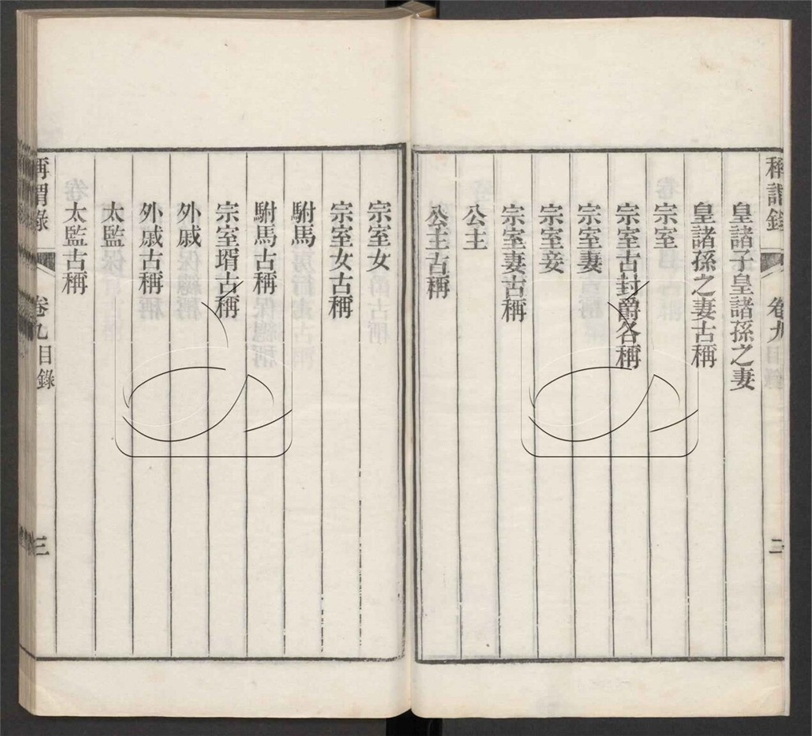 稱謂錄 卷九目錄 二
皇諸子皇諸孫之妻
皇諸孫之妻古稱
宗室
宗室古封爵各稱
宗室妻
宗室妾
宗室妻古稱
公主
公主古稱
宗室女
宗室女古稱
駙馬
駙馬古稱
宗室壻古稱
外戚
外戚古稱
太監
太監古稱
稱謂錄 卷九目錄 三